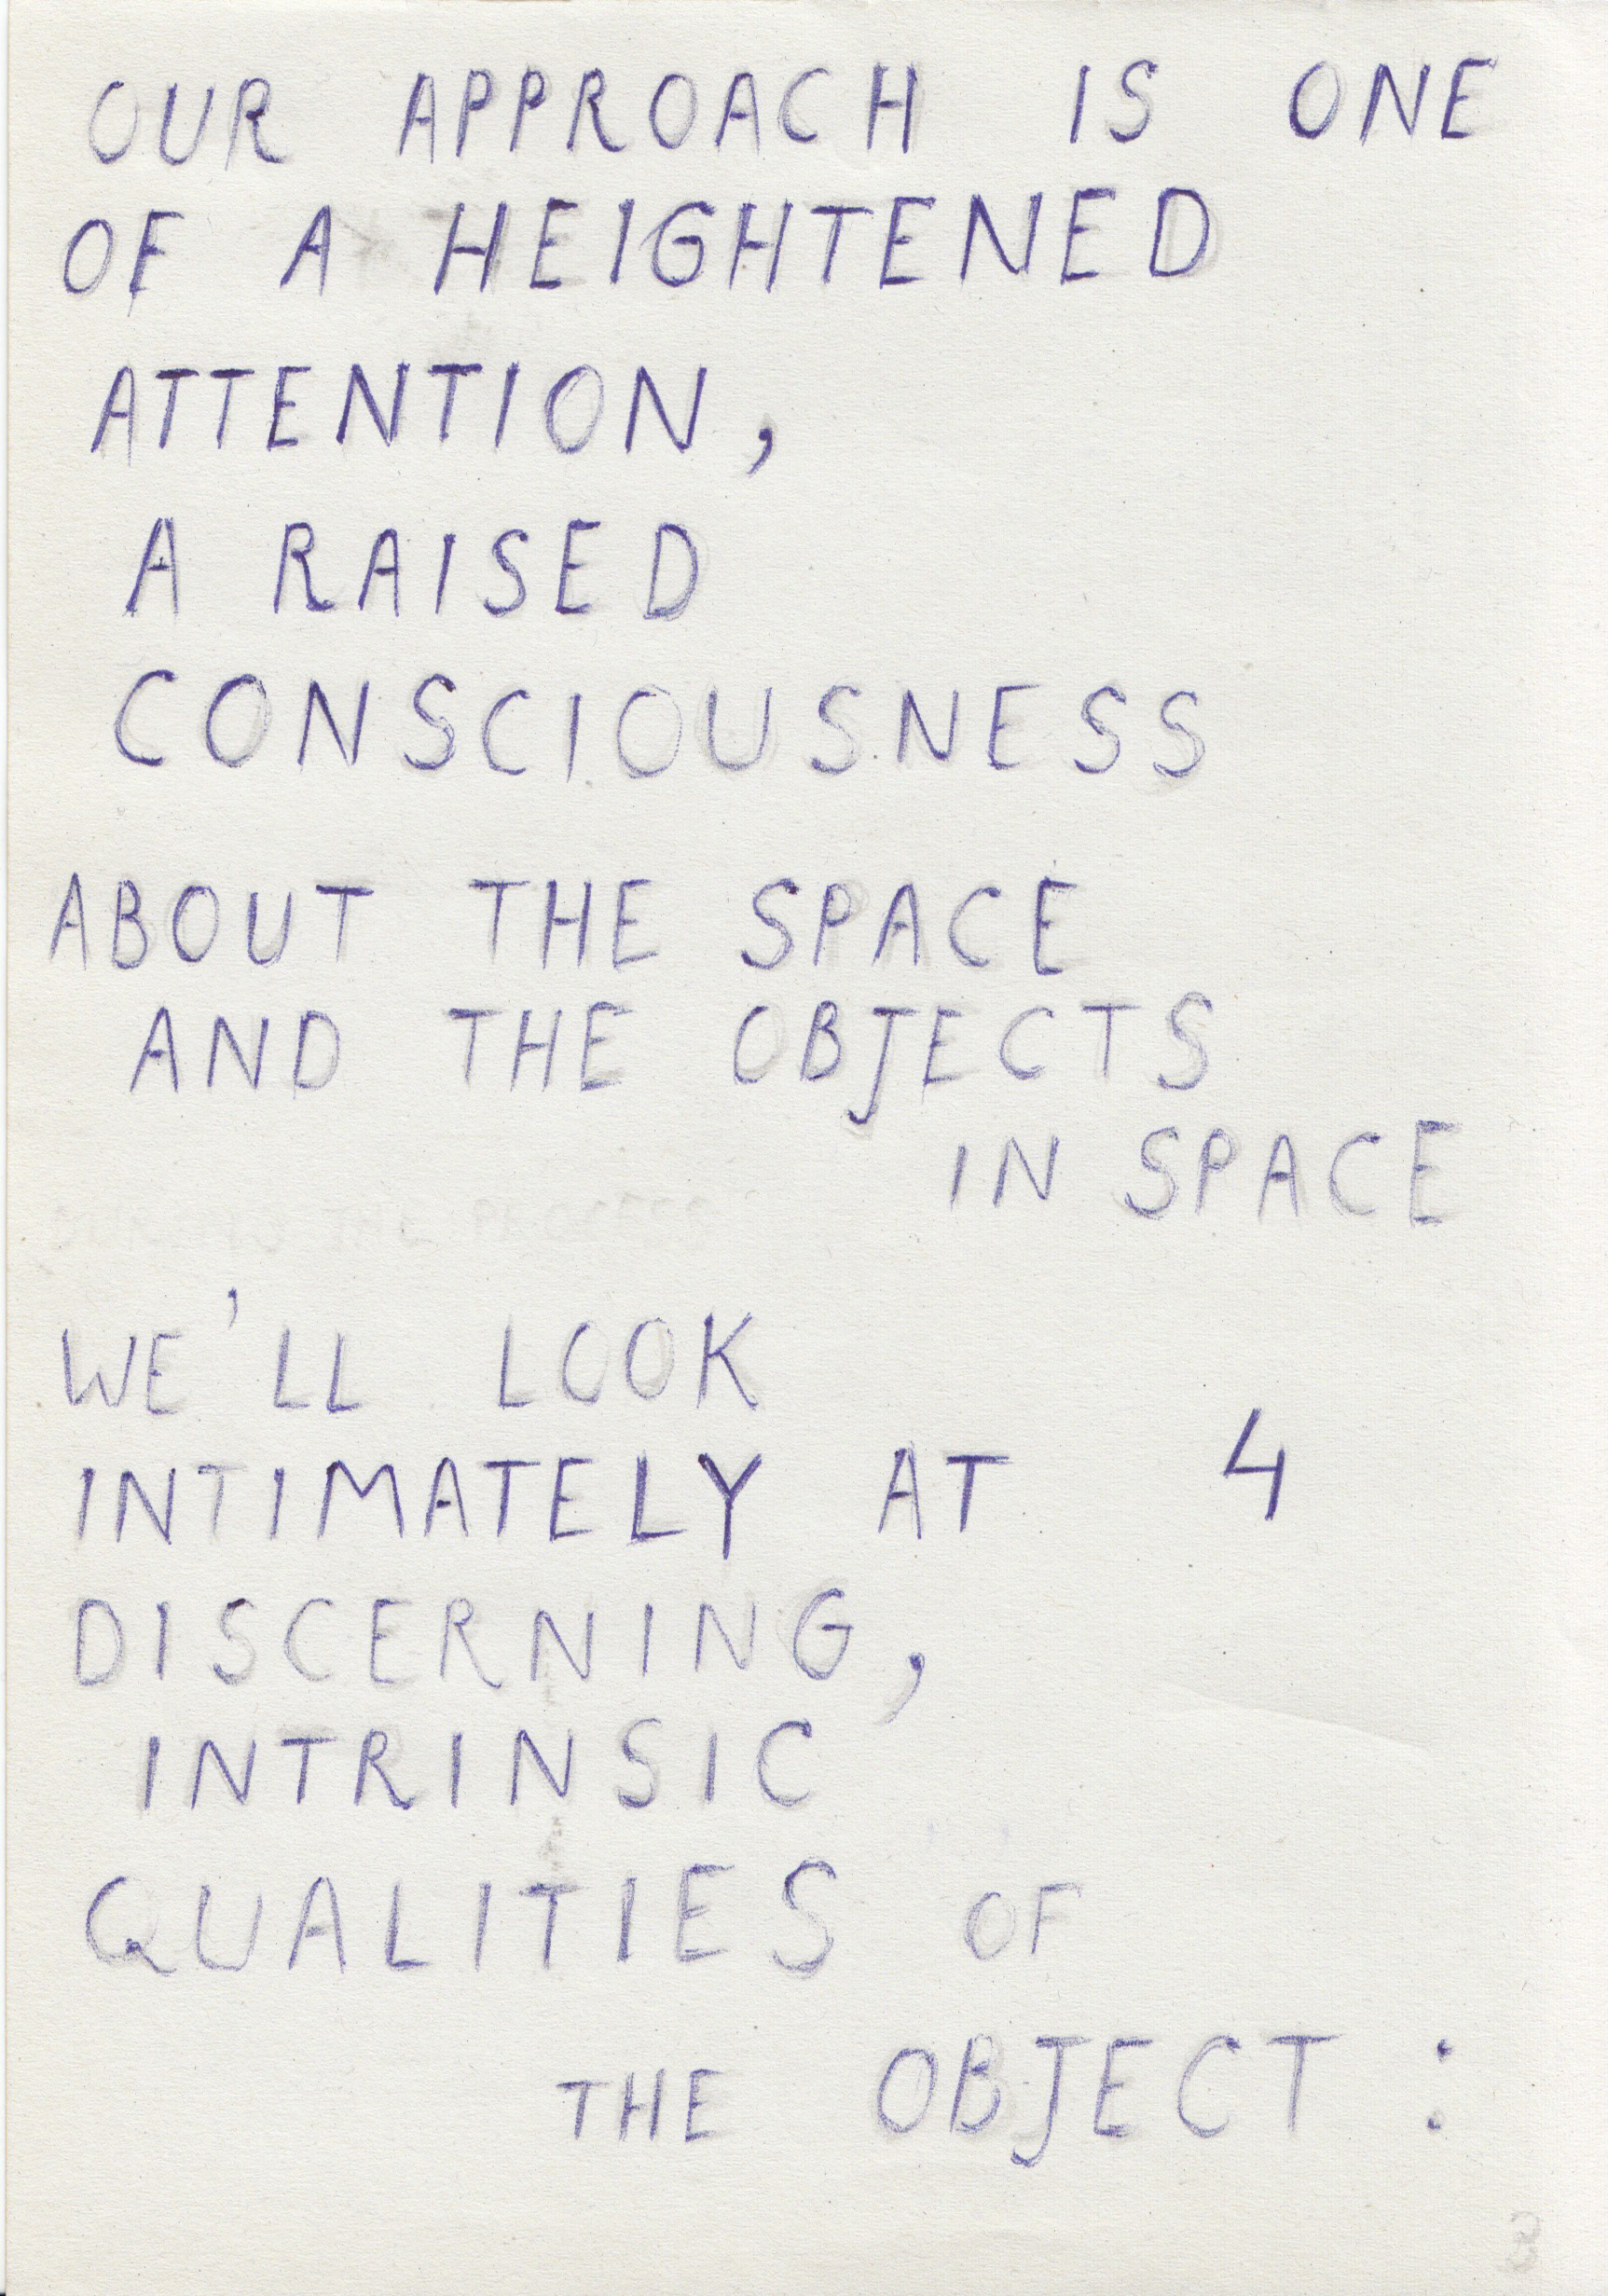 OUR APPROACH IS ONE
OF A HEIGHTENED
ATTENTION,
A RAISED
CONSCIOUSNESS
ABOUT THE SPACE
AND THE OBJECTS
IN SPACE
WE'LL LOOK
INTIMATELY AT 4
DISCERNING,
INTRINSIC
QUALITIES OF
THE OBJECT :
3